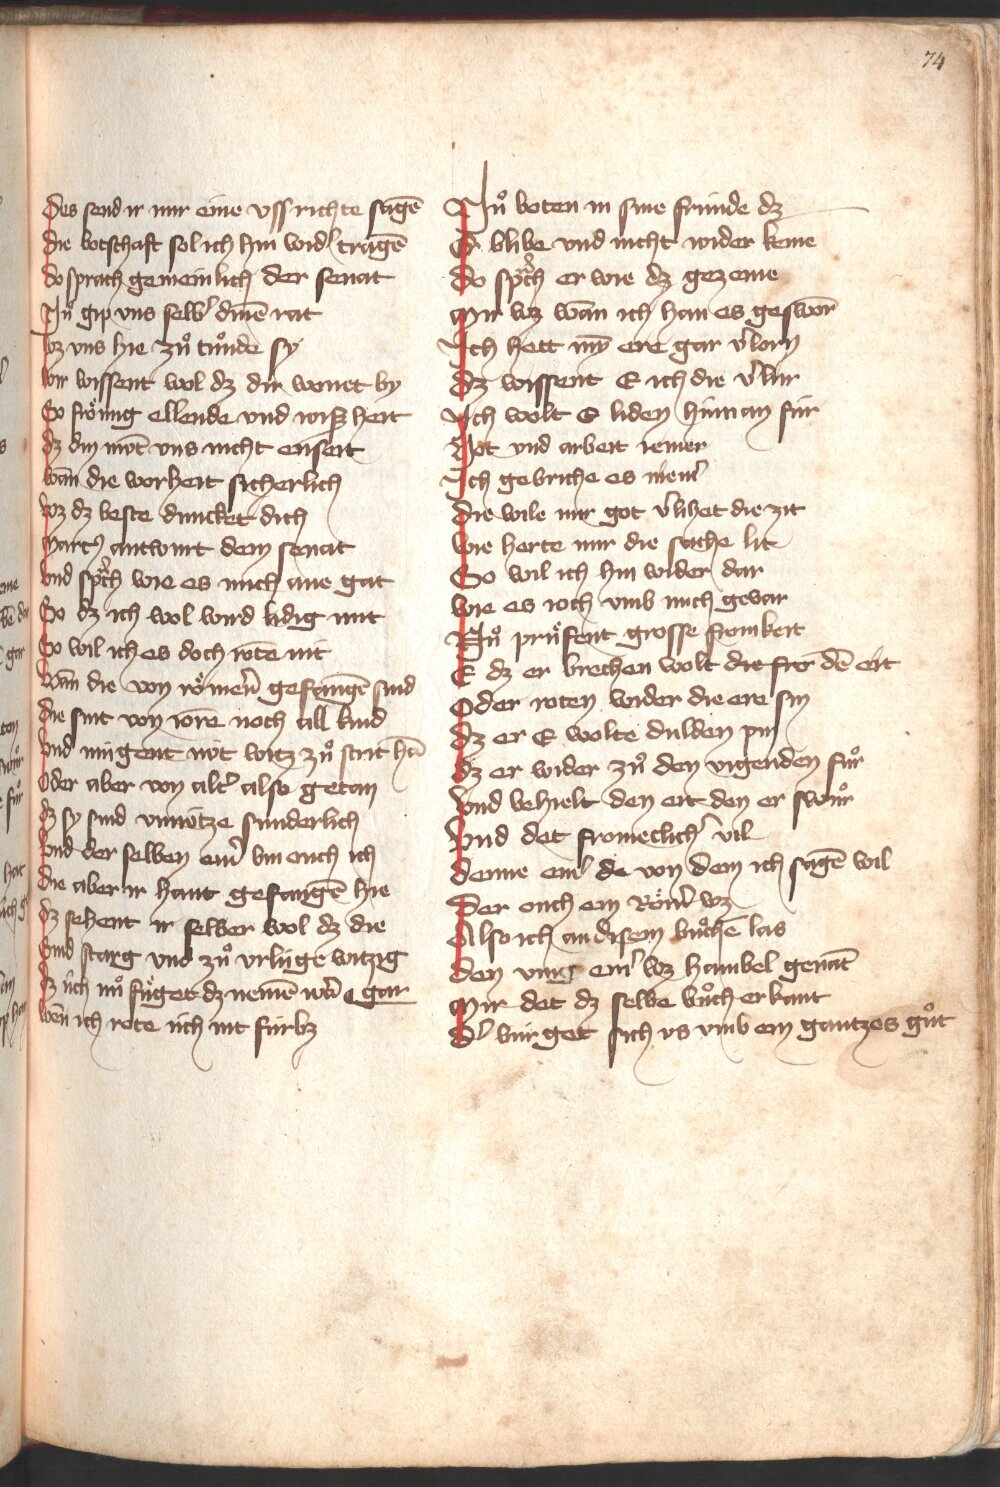 74
Des send ir mir eine vss richte sagē
Die botschaft sol ich hin wid' tragē
Do sprach gemeinlich der senat
Nuͦ gip vns selb' dinē rat
Wz vns hie zuͦ tuͦnde sy
Wir wissent wol dz dir wonet by
So froͤmg ellende vnd wisz heit
Dz din mǒt vns nicht enseit
Wan die worheit sicherlich
Wz dz beste duncket dich
Marcꝰ antwurt dem senat
Vnd spͣch wie es mich ane gat
So dz ich wol wird lidig mit
So wil ich es doch rote nit
Wān die von roͤmern gefangē sind
Die sint von iore noch all kind
Vnd mugent nǒt witz zuͦ strit hā
Oder aber von alt' also getan
Dz sy sind vnnütze sunderlich
Vnd der selben ein' bin ouch ich
Die aber ir hant gefangē hie
Dz sehent ir selber wol dz die
Sind starg vnd zuͦ vrlüge witzig
Dz üch nuͦ fuͤget dz nemē wā gar
Wen ich rote üch nit fürbz
Nuͦ boten in sine fründe dz
Er blibe vnd nicht wider keme
Do spͣch er wie dz gezeme
Mir wz wān ich han es gesworn
Ich hett mȳ ere gar v'lorn
Dz wissent E ich die v'lür
Ich wolt E liden hinnan für
Not vnd arbeit iemer
Ich gebriche es niem'
Die wile mir got v'lihet die zit
Wie herte mir die sache lit
So wil ich hin wider dar
Wie es ioch vmb mich gevar
Nuͦ pruͤfent grosse fromkeit
E dz er brechen wolt die fter dē eit
Oder roten wider die ere sin
Dz er E wolte dulden pin
Dz er wider zuͦ den vigenden fuͦr
Vnd behielt den eit den er swuͦr
Vnd det fromeclich' vil
Denne ein' de von dem ich sagē wil
Der ouch ein Roͤm' wz
Also ich an disem buͦchē las
Den ving ein' wz hanibel genāt
Mir det dz selbe buͦch erkant
D' bürget sich vs vmb ein gantzes guͦt